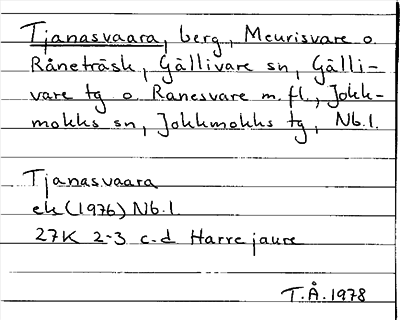 Tjanasvaara, berg, Meurisvare o.
Råneträsk, Gällivare sn, Gälli-
vare tg o. Ranesvare m.fl., Jokk-
mokks sn, Jokkmokks tg, Nb.l.
Tjanasvaara
ek (1976) Nb.l.
27K 2-3 c-d Harrejaure
T.Å. 1978